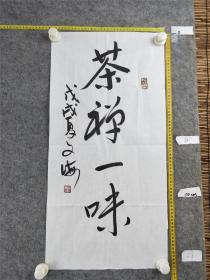 茶禅一味
戊戌夏文海